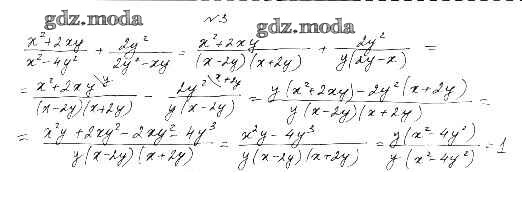 gdz.moda
№3
gdz.moda
(x²+2xy)/(x²-4y²) + 2y²/(2y²-xy) = (x²+2xy)/((x-2y)(x+2y)) + 2y²/(y(2y-x)) =
= (x²+2xy\y)/((x-2y)(x+2y)) - (2y²\x+2y)/(y(x-2y)) = (y(x²+2xy)-2y²(x+2y))/(y(x-2y)(x+2y)) =
= (x²y+2xy²-2xy²-4y³)/(y(x-2y)(x+2y)) = (x²y-4y³)/(y(x-2y)(x+2y)) = (y(x²-4y²))/(y(x²-4y²)) = 1